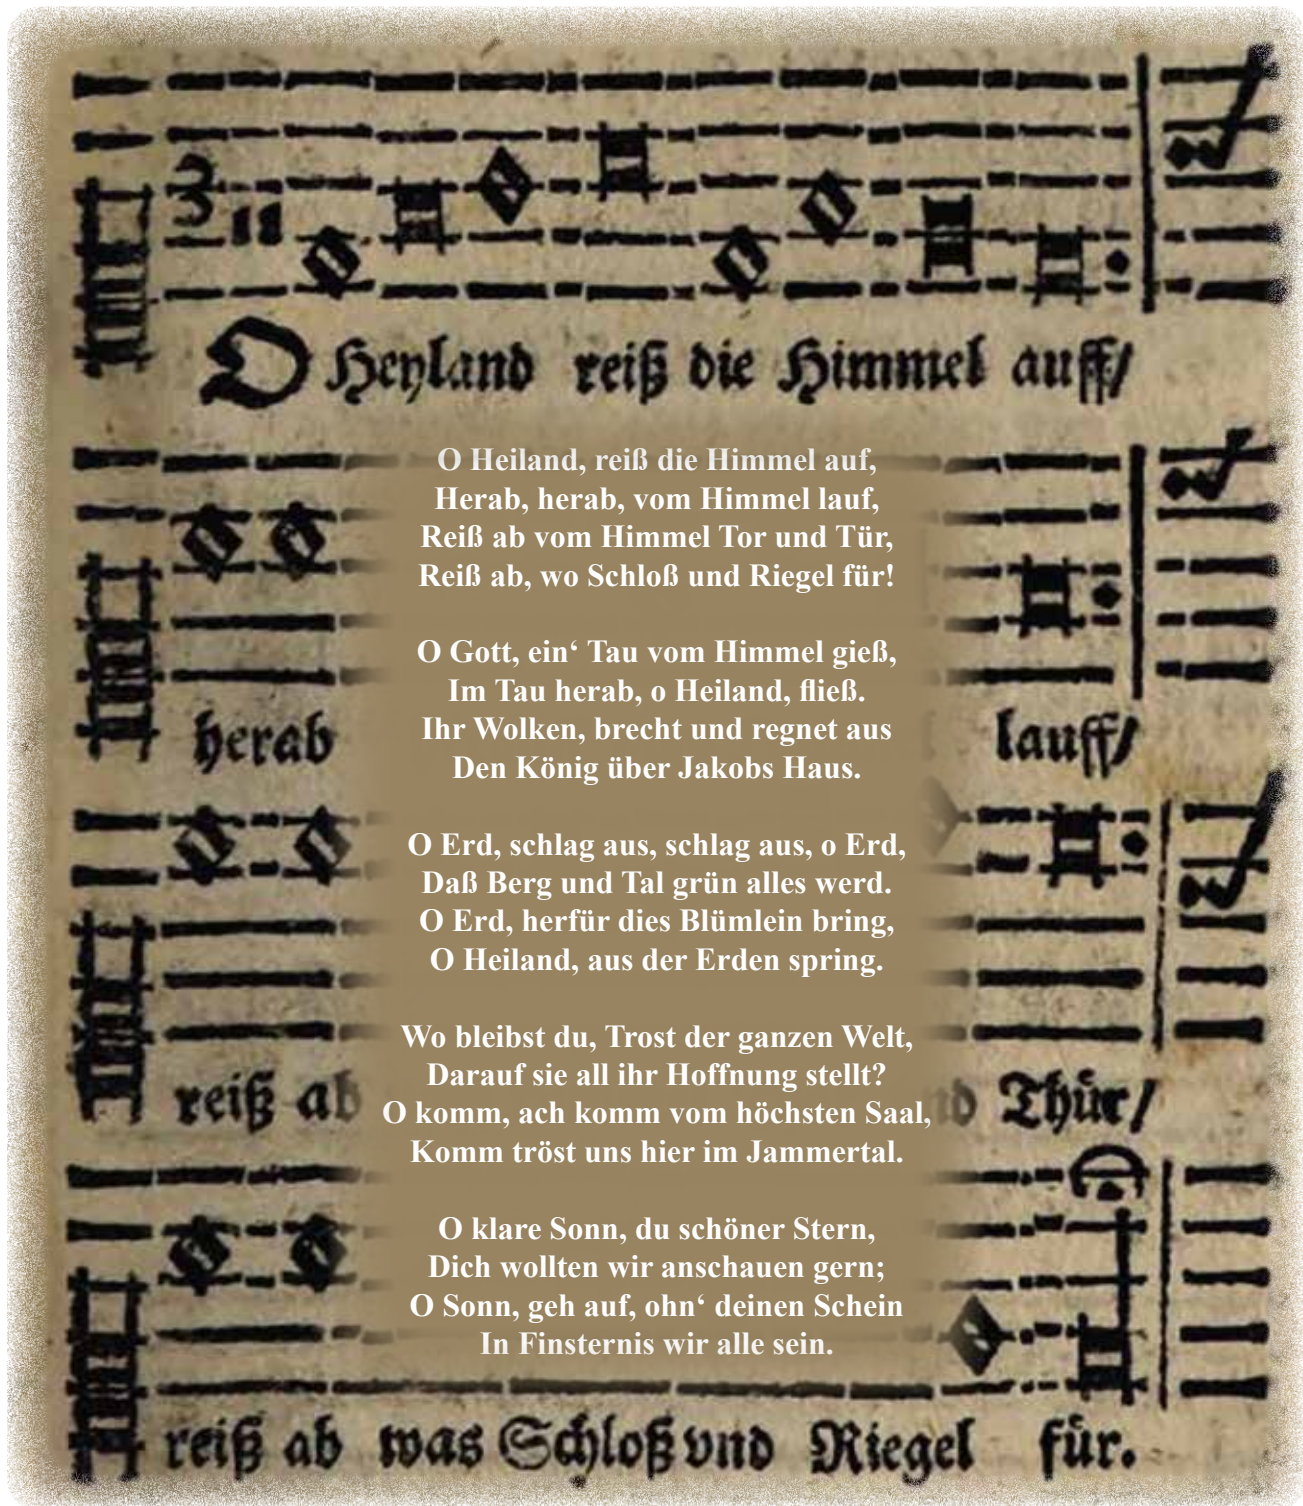 O Heyland reiß die Himmel auff/
O Heiland, reiß die Himmel auf,
Herab, herab, vom Himmel lauf,
Reiß ab vom Himmel Tor und Tür,
Reiß ab, wo Schloß und Riegel für!
O Gott, ein‘ Tau vom Himmel gieß,
Im Tau herab, o Heiland, fließ.
Ihr Wolken, brecht und regnet aus
Den König über Jakobs Haus.
herab lauff/
O Erd, schlag aus, schlag aus, o Erd,
Daß Berg und Tal grün alles werd.
O Erd, herfür dies Blümlein bring,
O Heiland, aus der Erden spring.
Wo bleibst du, Trost der ganzen Welt,
Darauf sie all ihr Hoffnung stellt?
O komm, ach komm vom höchsten Saal,
Komm tröst uns hier im Jammertal.
reiß ab Thür/
O klare Sonn, du schöner Stern,
Dich wollten wir anschauen gern;
O Sonn, geh auf, ohn‘ deinen Schein
In Finsternis wir alle sein.
reiß ab was Schloß vnd Riegel für.